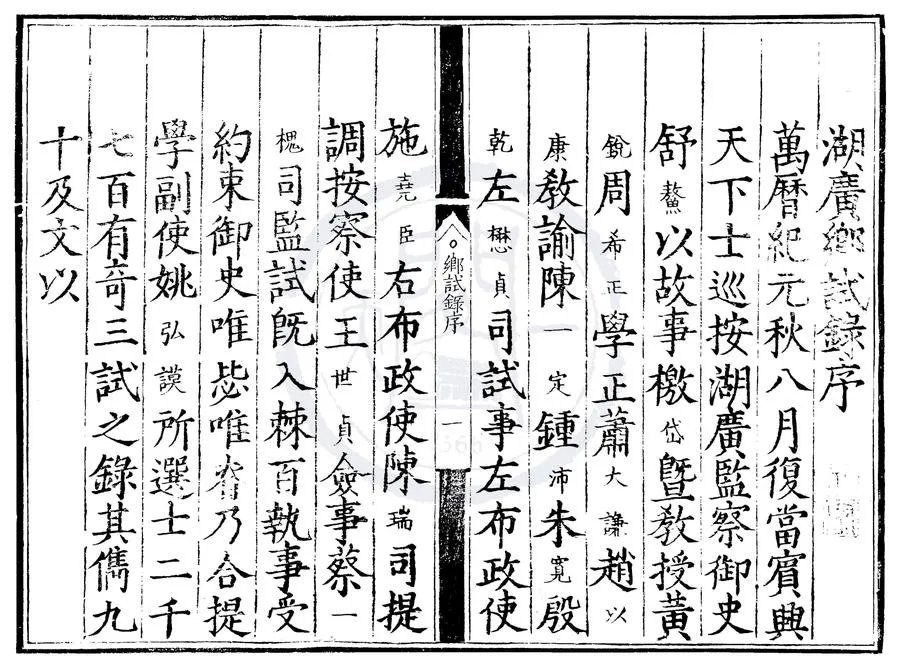 湖廣鄉試錄序
萬曆紀元秋八月復當賓興
天下士巡按湖廣監察御史
舒鰲以故事檄岱曁教授黃
銳周希正學正蕭大謙趙以
康敎諭陳一定鍾沛朱寬殷
乾左懋貞司試事左布政使
鄉試錄序
一
施堯臣右布政使陳瑞司提
調按察使王世貞僉事蔡一
槐司監試旣入棘百執事受
約束御史唯毖唯眘乃合提
學副使姚弘謨所選士二千
七百有奇三試之錄其儁九
十及文以